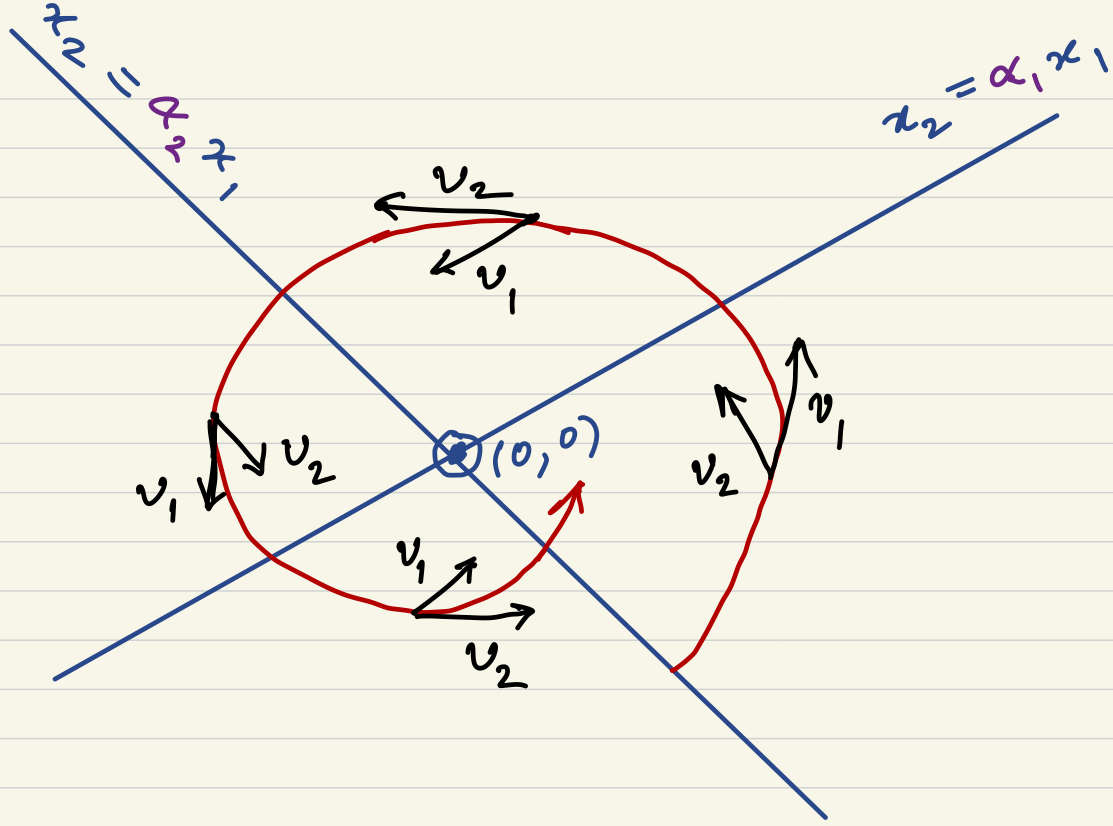 x₂ = α₂ x₁
x₂ = α₁ x₁
v₂
v₁
v₁
v₂
(0,0)
v₂
v₁
v₁
v₂